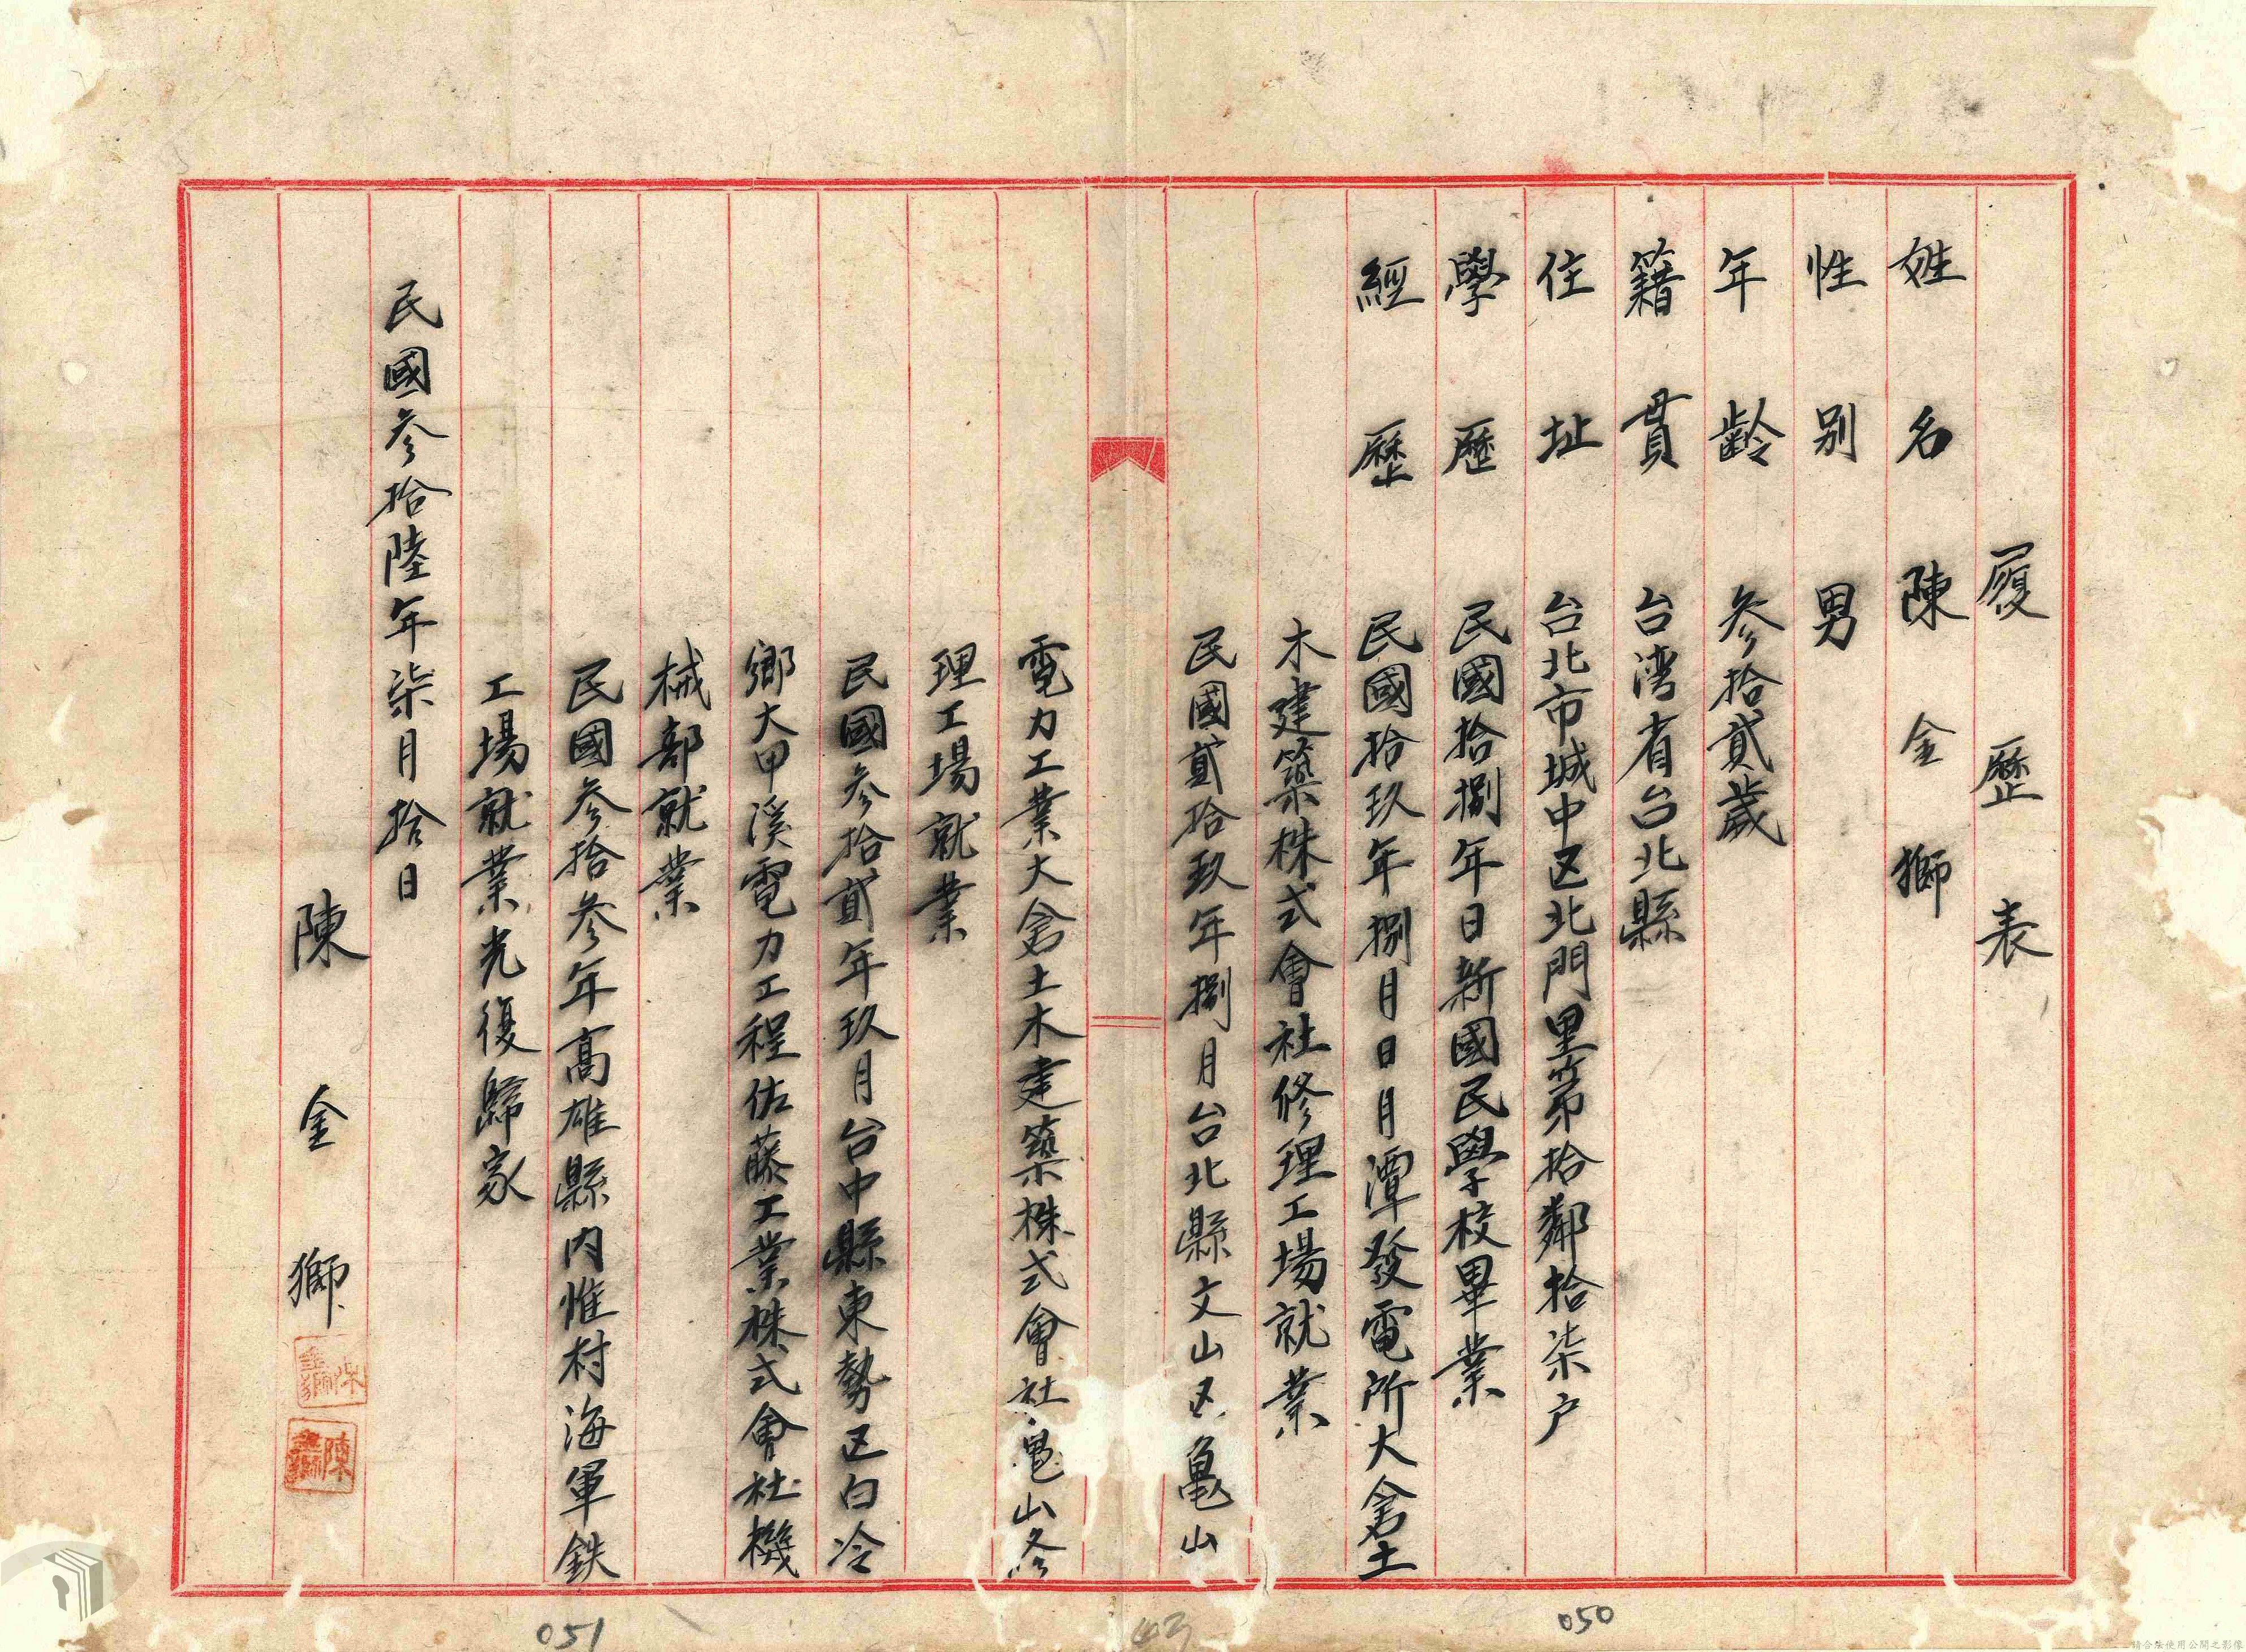 履歷表
姓名 陳金獅
性別 男
年齡 參拾貳歲
籍貫 台湾省台北縣
住址 台北市城中区北門里第拾鄰拾柒户
學歷 民國拾捌年日新國民學校畢業
經歷 民國拾玖年捌月日月潭發電所大倉土
木建築株式會社修理工場就業
民國貳拾玖年捌月台北縣文山区龜山
電力工業大倉土木建築株式會社龜山修
理工場就業
民國參拾貳年玖月台中縣東勢区白冷
鄉大甲溪電力工程佐藤工業株式會社機
械部就業
民國參拾參年高雄縣內惟村海軍鉄
工場就業光復歸家
民國參拾陸年柒月拾日
陳金獅
陳金獅
陳金獅
050
051